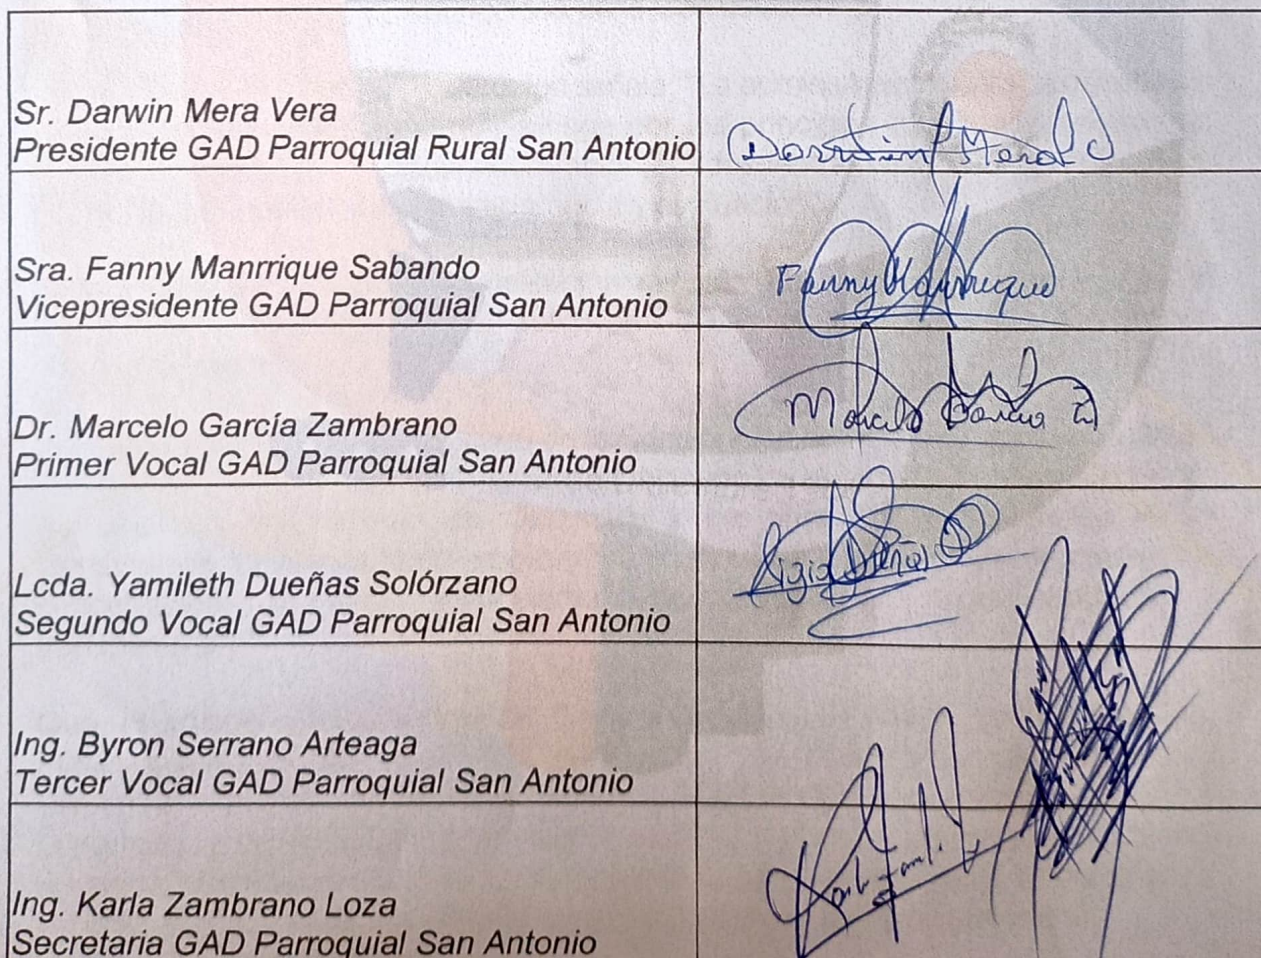 Sr. Darwin Mera Vera
Presidente GAD Parroquial Rural San Antonio
Sra. Fanny Manrrique Sabando
Vicepresidente GAD Parroquial San Antonio
Fanny Manrrique
Dr. Marcelo García Zambrano
Primer Vocal GAD Parroquial San Antonio
Marcelo García Z
Lcda. Yamileth Dueñas Solórzano
Segundo Vocal GAD Parroquial San Antonio
Ing. Byron Serrano Arteaga
Tercer Vocal GAD Parroquial San Antonio
Ing. Karla Zambrano Loza
Secretaria GAD Parroquial San Antonio